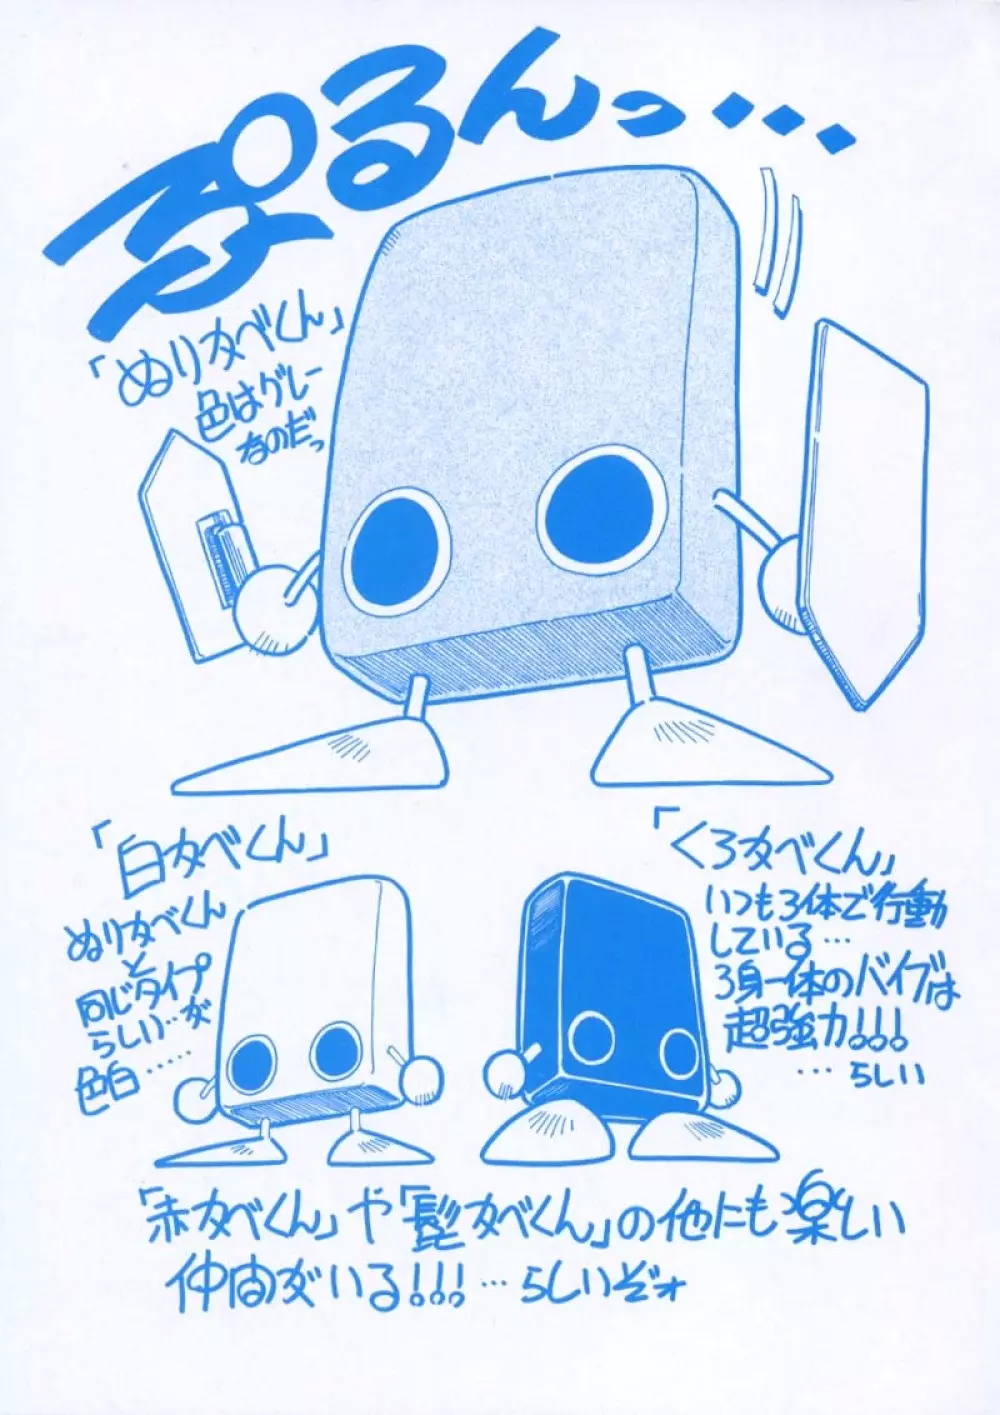 ぷるんっ・・・
「ぬりカベくん」
色はグレー
なのだっ
「白カベくん」
ぬりカベくん
と
同じタイプ
らしい…が
色白……
「くろカベくん」
いつも3体で行動
している…
3身一体のバイブは
超強力!!!
…らしい
「赤カベくん」や「髭カベくん」の他にも楽しい
仲間がいる!!!…らしいぞォ